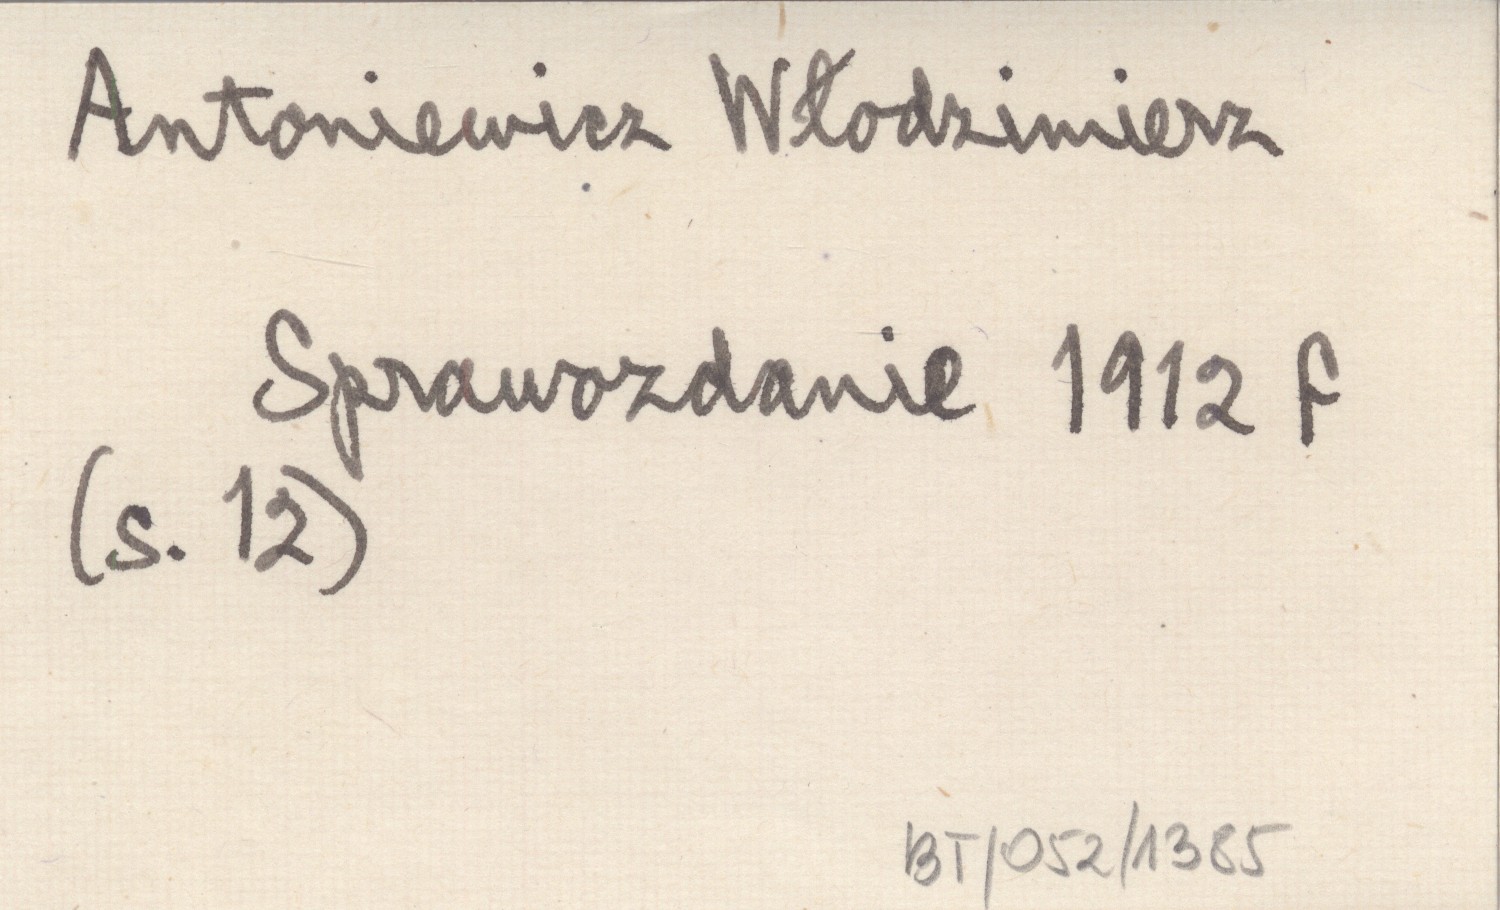 Antoniewicz Włodzimierz
Sprawozdanie 1912 f
(s. 12)
BT/052/1385